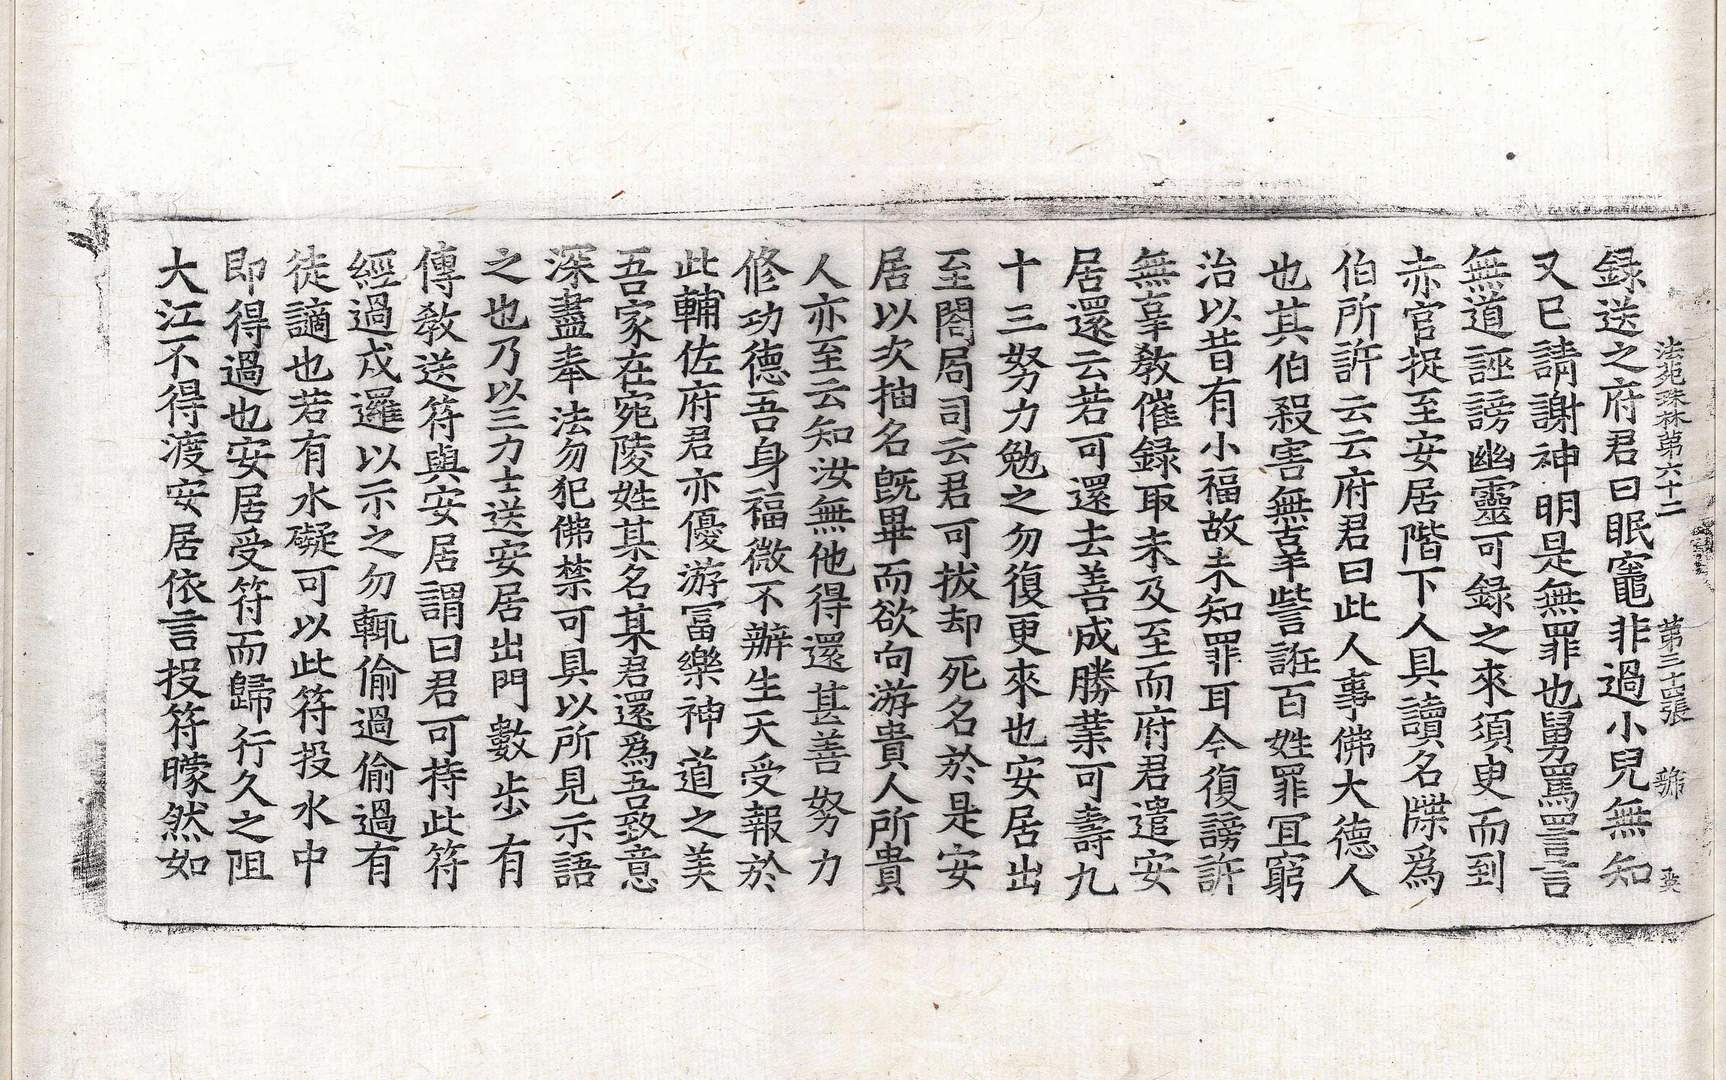 法苑珠林第六十二 第三十四張 號
録送之府君曰眠竈非過小兒無知
又已請謝神明是無罪也舅罵詈言
無道誣謗幽靈可録之來須臾而到
赤官捉至安居階下人具讀名牒爲
伯所訴云云府君曰此人事佛大德人
也其伯殺害無辜訾誑百姓罪冝窮
治以昔有小福故未知罪耳今復謗訴
無辜教催録取未及至而府君遣安
居還云若可還去善成勝業可壽九
十三努力勉之勿復更來也安居出
至閣局司云君可拔却死名於是安
居以次抽名旣畢而欲向游貴人所貴
人亦至云知汝無他得還甚善努力
修功德吾身福微不辦生天受報於
此輔佐府君亦優游冨樂神道之美
吾家在宛陵姓某名某君還爲吾致意
深盡奉法勿犯佛禁可具以所見示語
之也乃以三力士送安居出門數步有
傳教送符與安居謂曰君可持此符
經過戍邏以示之勿輒偷過偷過有
徒謫也若有水礙可以此符投水中
即得過也安居受符而歸行久之阻
大江不得渡安居依言投符矇然如